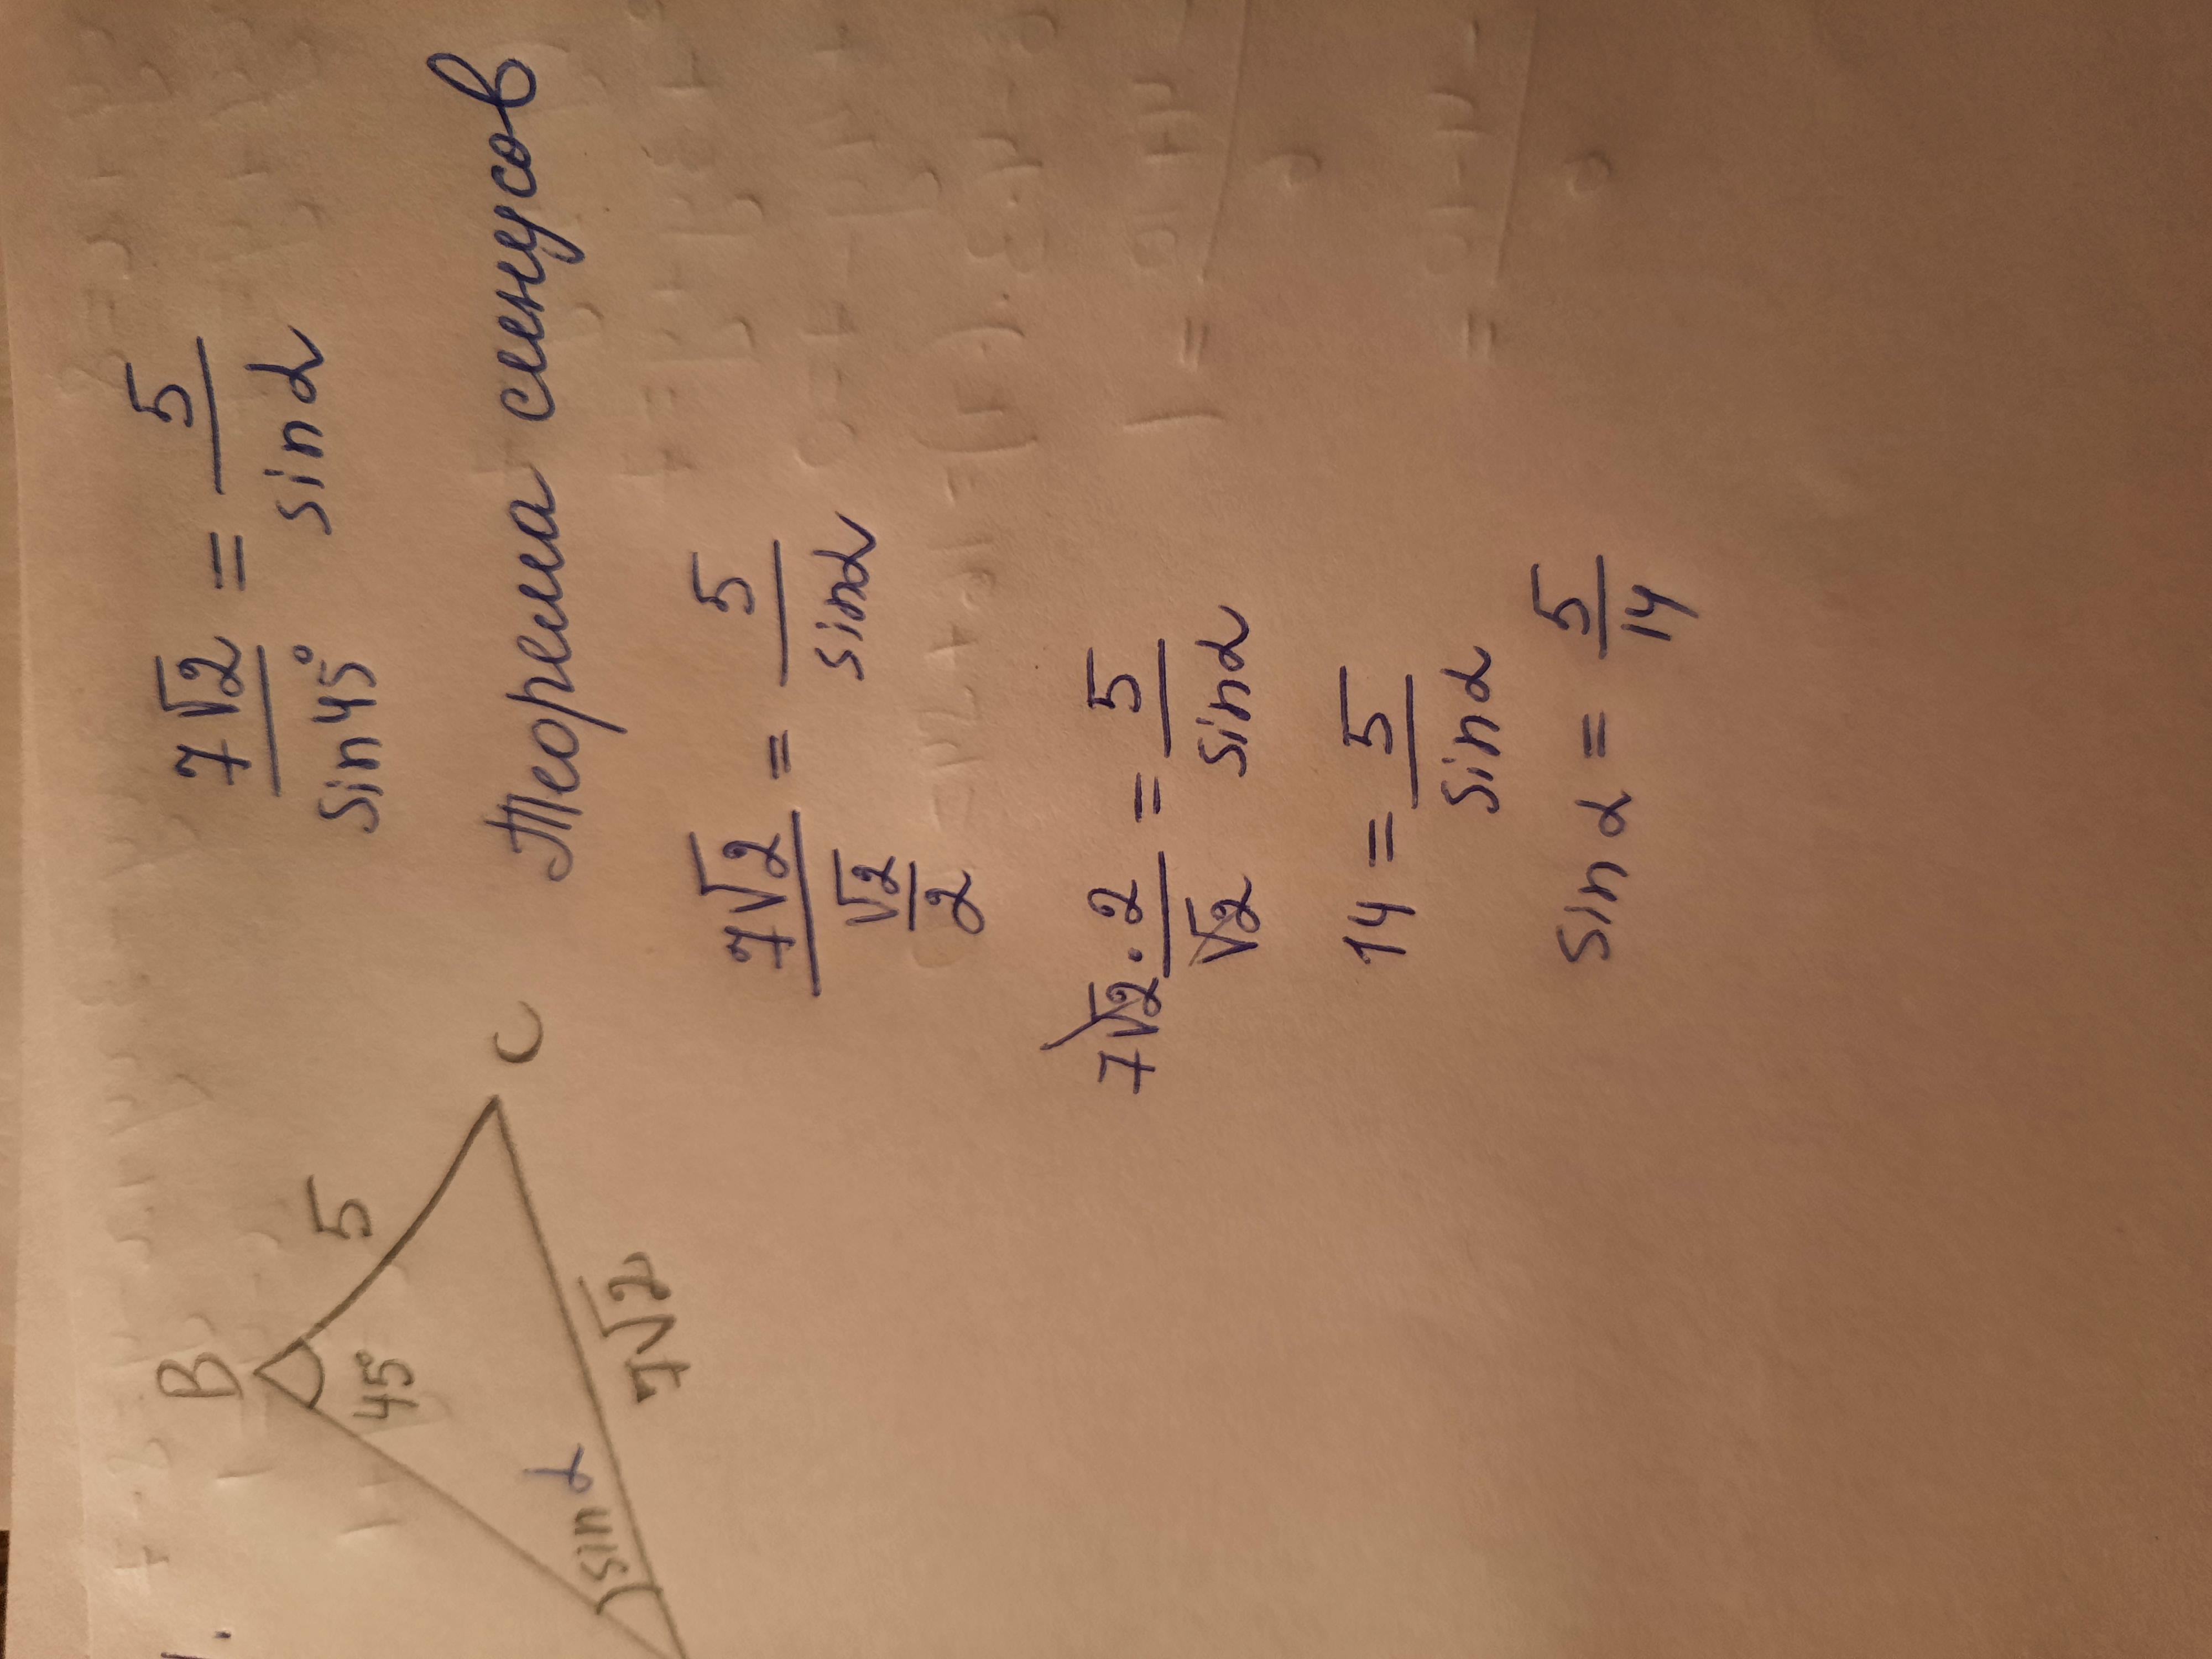 B
5
45°
C
sin α
7√2
7√2/sin 45° = 5/sin α
Теорема синусов
7√2/(√2/2) = 5/sin α
7√2 · 2/√2 = 5/sin α
14 = 5/sin α
sin α = 5/14